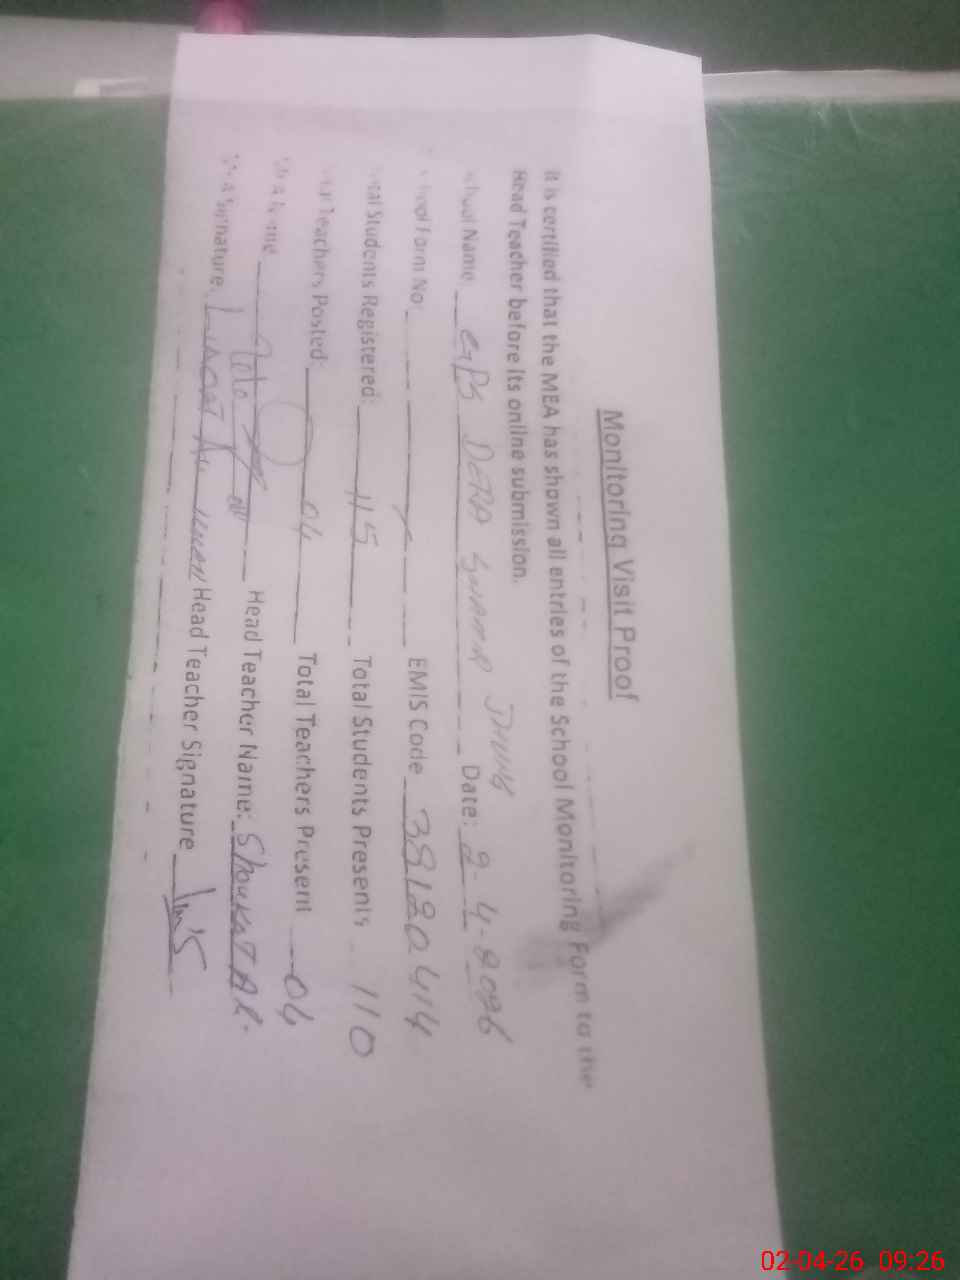 Monitoring Visit Proof
It is certified that the MEA has shown all entries of the School Monitoring Form to the
Head Teacher before its online submission.
School Name GPS DERA Date: 2-4-2026
School Form No: EMIS Code 38120414
Total Students Registered: 115 Total Students Presents 110
Total Teachers Posted: 04 Total Teachers Present 04
Name Head Teacher Name: Shoukat Ali
Signature: Head Teacher Signature
02-04-26 09:26